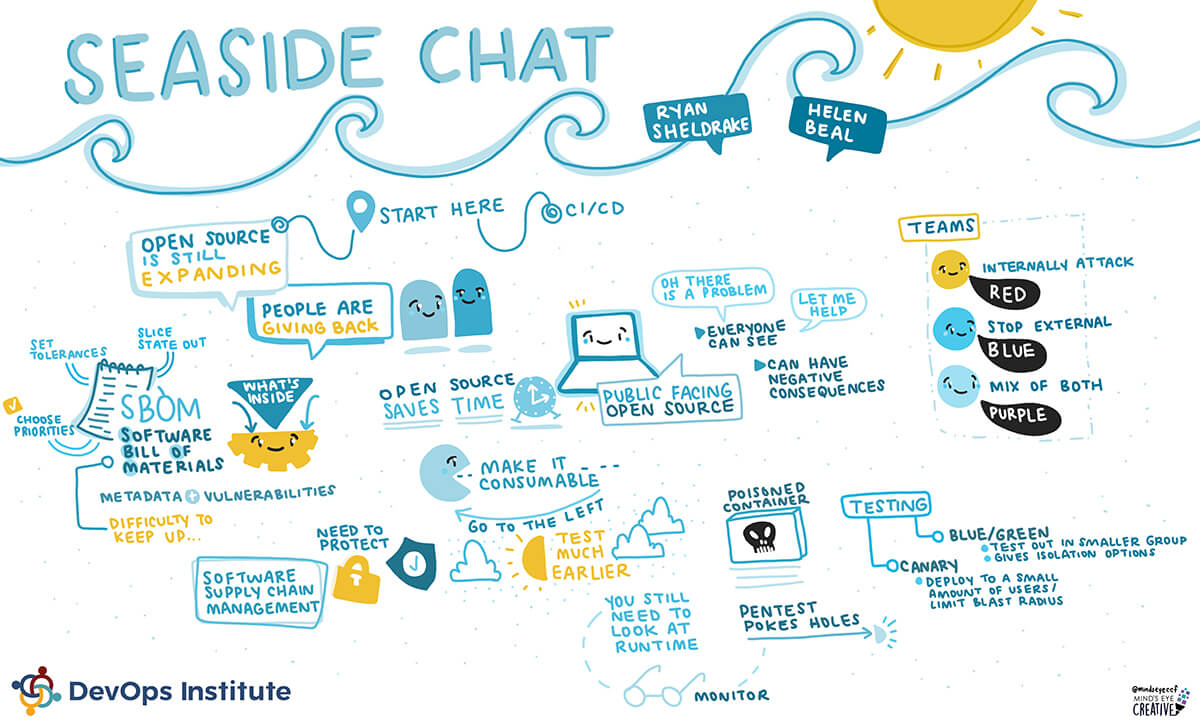 SEASIDE CHAT
RYAN
SHELDRAKE
HELEN
BEAL
START HERE
CI/CD
OPEN SOURCE
IS STILL
EXPANDING
PEOPLE ARE
GIVING BACK
SET
TOLERANCES
SLICE
STATE OUT
CHOOSE
PRIORITIES
SBOM
SOFTWARE
BILL OF
MATERIALS
WHAT'S
INSIDE
METADATA + VULNERABILITIES
DIFFICULTY TO
KEEP UP...
OPEN SOURCE
SAVES TIME
PUBLIC FACING
OPEN SOURCE
OH THERE
IS A PROBLEM
LET ME
HELP
EVERYONE
CAN SEE
CAN HAVE
NEGATIVE
CONSEQUENCES
TEAMS
INTERNALLY ATTACK
RED
STOP EXTERNAL
BLUE
MIX OF BOTH
PURPLE
MAKE IT
CONSUMABLE
GO TO THE LEFT
TEST
MUCH
EARLIER
NEED TO
PROTECT
SOFTWARE
SUPPLY CHAIN
MANAGEMENT
YOU STILL
NEED TO
LOOK AT
RUNTIME
MONITOR
POISONED
CONTAINER
PENTEST
POKES HOLES
TESTING
BLUE/GREEN
TEST OUT IN SMALLER GROUP
GIVES ISOLATION OPTIONS
CANARY
DEPLOY TO A SMALL
AMOUNT OF USERS/
LIMIT BLAST RADIUS
DevOps Institute
@mindseyeccf
MIND'S EYE
CREATIVE